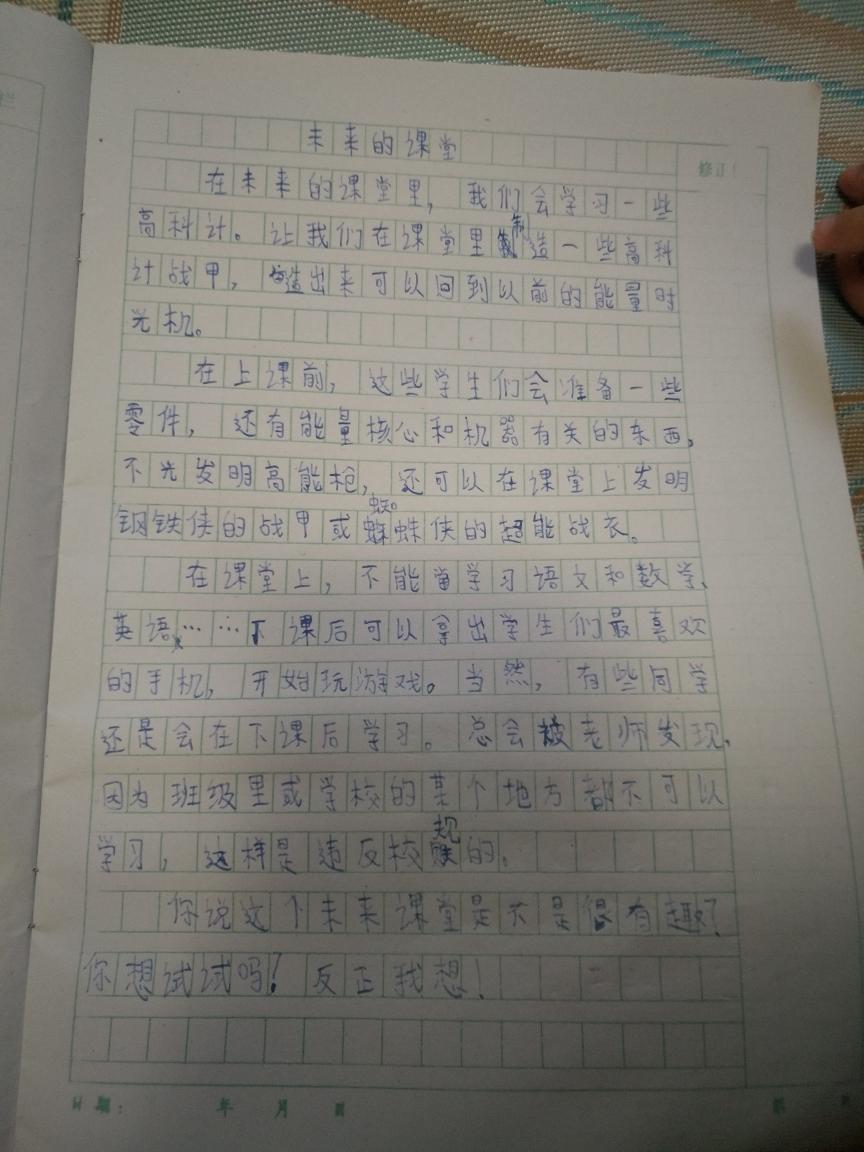 未来的课堂
修订
在未来的课堂里，我们会学习一些
高科计。让我们在课堂里制造一些高科
计战甲，造出来可以回到以前的能量时
光机。
在上课前，这些学生们会准备一些
零件，还有能量核心和机器有关的东西，
不光发明高能枪，还可以在课堂上发明
钢铁侠的战甲或蜘蛛侠的超能战衣。
在课堂上，不能留学习语文和数学、
英语……下课后可以拿出学生们最喜欢
的手机，开始玩游戏。当然，有些同学
还是会在下课后学习。总会被老师发现，
因为班级里或学校的某个地方都不可以
学习，这样是违反校规的。
你说这个未来课堂是不是很有趣？
你想试试吗？反正我想！
日期： 年 月 日